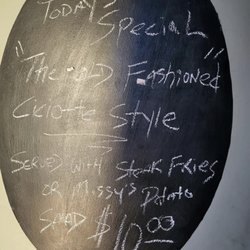 TODAY'S
Special
"The OLD Fashioned"
Style
Served with Steak Fries
or Missy's Potato
Salad $10.00